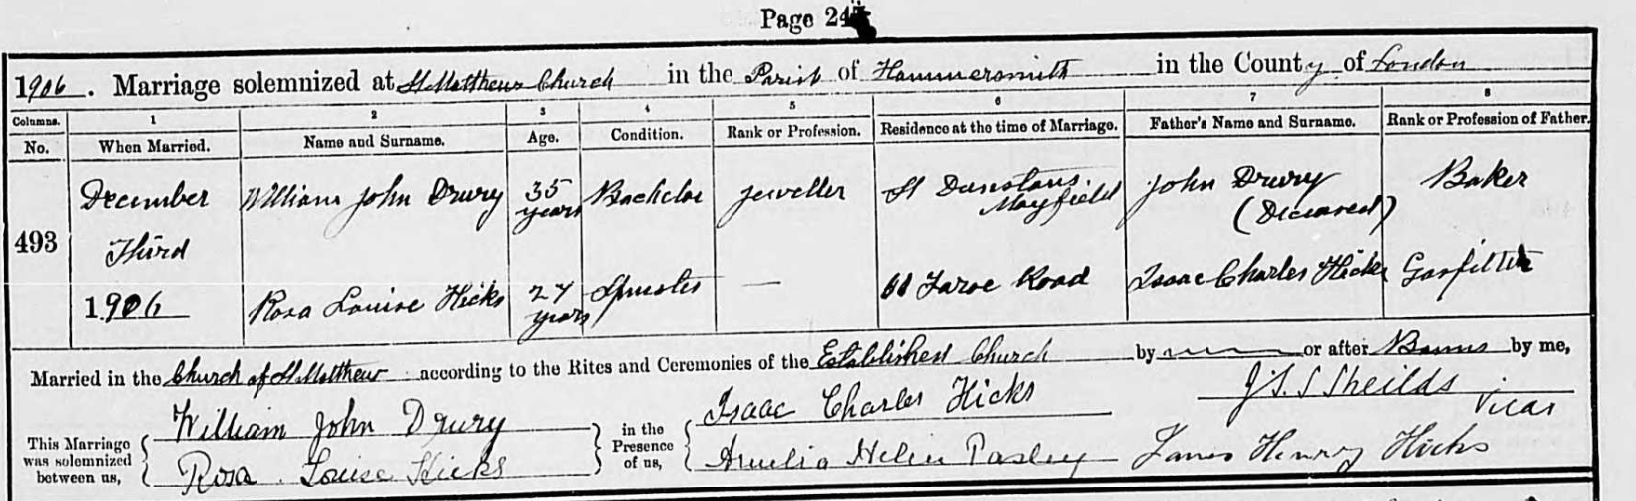 Page 247
1906. Marriage solemnized at St Matthew Church in the Parish of Hammersmith in the County of London
Columns. 1 2 3 4 5 6 7 8
No. When Married. Name and Surname. Age. Condition. Rank or Profession. Residence at the time of Marriage. Father's Name and Surname. Rank or Profession of Father.
December William John Drury 35 years Bachelor Jeweller St Dunstans Mayfield John Drury (Deceased) Baker
493 Third
1906 Rosa Louise Hicks 27 years Spinster — Faroe Road Isaac Charles Hicks Gasfitter
Married in the Church of St Matthew according to the Rites and Ceremonies of the Established Church by — or after Banns by me,
William John Drury Isaac Charles Hicks Sheilds
Vicar
This Marriage was solemnized between us, in the Presence of us,
Rosa Louise Hicks Amelia Helen Pasley James Henry Hicks